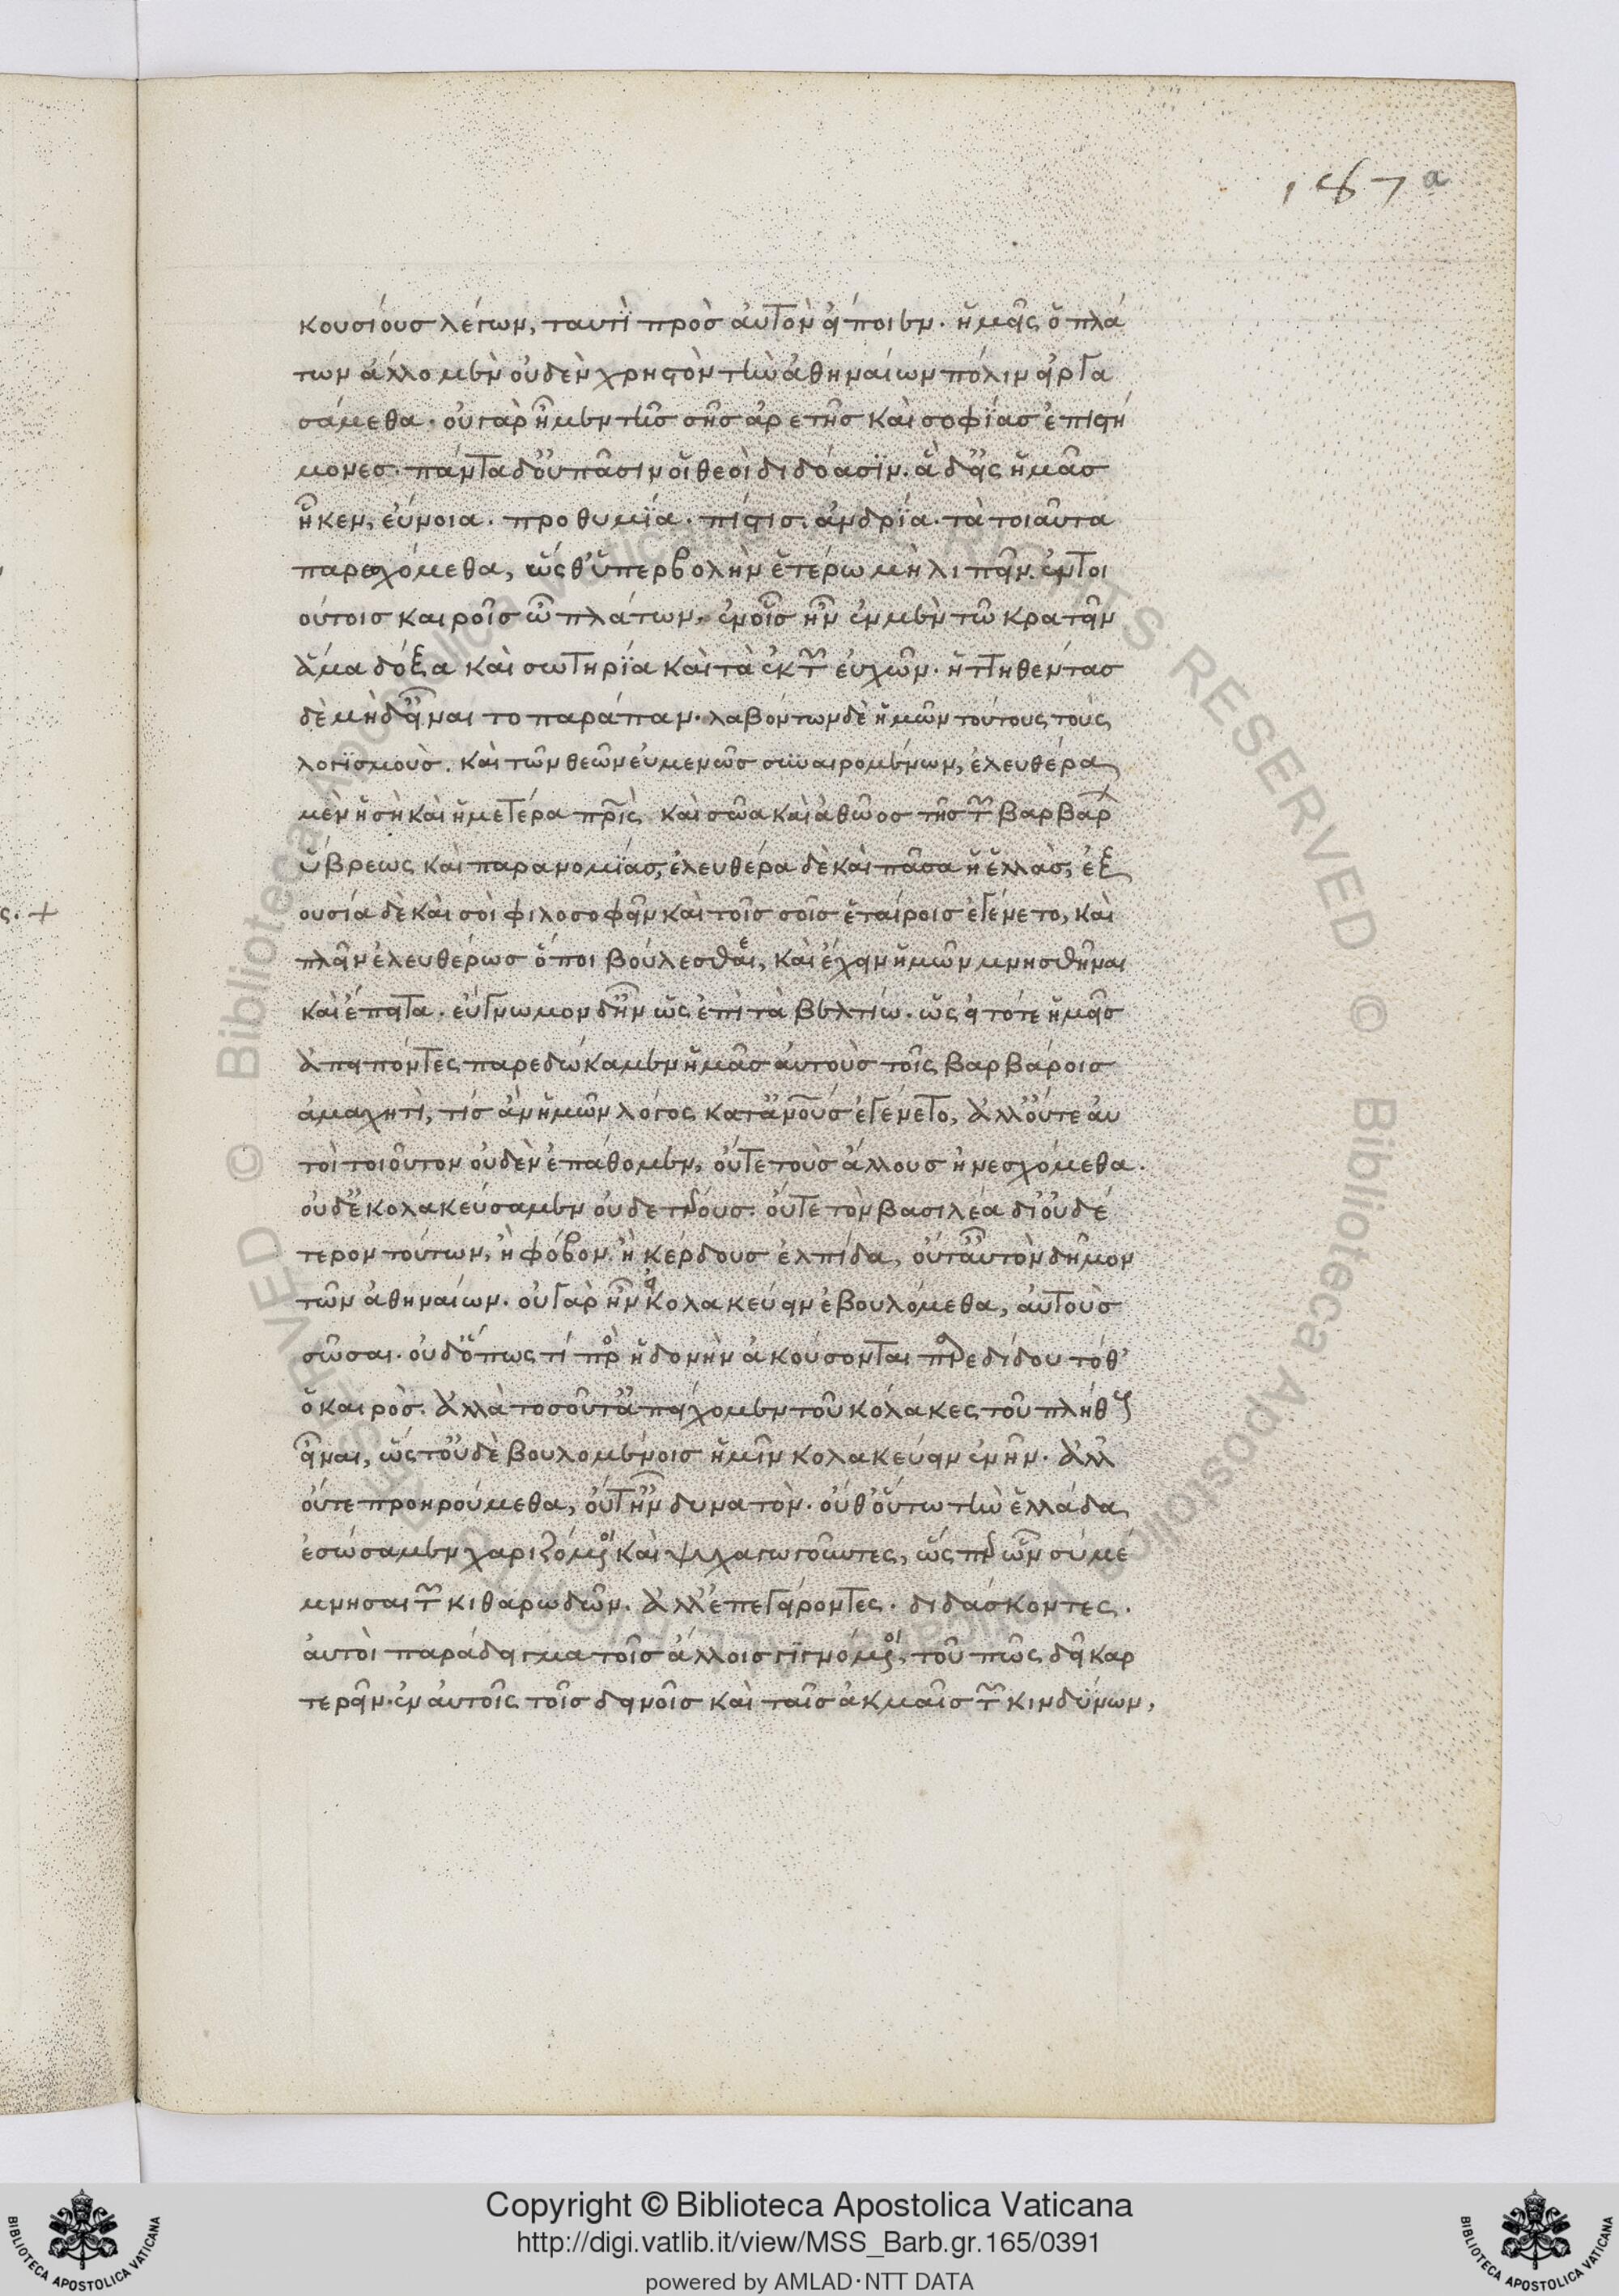 187 a
κουσίους λέγων, ταυτὶ πρὸς αὐτὸν εἴποιεν. ἡμεῖς ὦ πλά
των ἄλλο μὲν οὐδὲν χρηστὸν τὴν ἀθηναίων πόλιν εἰργα
σάμεθα. οὐ γὰρ ἦμεν τῆς σῆς ἀρετῆς καὶ σοφίας ἐπιστή
μονες. πάντα δ' οὐ πᾶσιν οἱ θεοὶ διδόασιν. ἃ δ' εἰς ἡμᾶς
ἧκεν, εὔνοια. προθυμία. πίστις. ἀνδρία. τὰ τοιαῦτα
παρεχόμεθα, ὥσθ' ὑπερβολὴν ἑτέρω μὴ λιπεῖν. ἐν τοι
ούτοις καιροῖς ὦ πλάτων, ἐν οἷς ἦν ἐν μὲν τῶ κρατεῖν
ἅμα δόξα καὶ σωτηρία καὶ τὰ ἐκ τῶν εὐχῶν. ἡττηθέντας
δὲ μηδ' εἶναι το παράπαν. λαβόντων δὲ ἡμῶν τούτους τοὺς
λογισμούς. καὶ τῶν θεῶν εὐμενῶς συναιρομένων, ἐλευθέρα
μὲν ἡ σὴ καὶ ἡμετέρα πρὶς καὶ σῶα καὶ ἀθῶος τῆς τῶν βαρβάρ
ὕβρεως καὶ παρανομίας, ἐλευθέρα δὲ καὶ πᾶσα ἡ ἑλλὰς, ἐξ
ουσία δὲ καὶ σοὶ φιλοσοφεῖν καὶ τοῖς σοῖς ἑταίροις ἐγένετο, καὶ
πλεῖν ἐλευθέρως ὅποι βούλεσθαι, καὶ ἔχειν ἡμῶν μνησθῆναι
καὶ ἔπειτα. εὔγνωμον δ' ἦν ὡς ἐπὶ τὰ βελτίω. ὡς εἰ τότε ἡμεῖς
ἀπειπόντες παρεδώκαμεν ἡμᾶς αὐτοὺς τοῖς βαρβάροις
ἀμαχητὶ, τίς ἂν ἡμῶν λόγος κατ' ἀνοὺς ἐγένετο, ἀλλ' οὔτε αὐ
τοὶ τοιοῦτον οὐδὲν ἐπάθομεν, οὔτε τοὺς ἄλλους ἠνεσχόμεθα.
οὐδ' ἐκολακεύσαμεν οὐδετέρους. οὔτε τὸν βασιλέα δι' οὐδέ
τερον τούτων, ἢ φόβον. ἢ κέρδους ἐλπίδα, οὔτ' αὐτὸν δῆμον
τῶν ἀθηναίων. οὐ γὰρ ἦν εἰ κολακεύειν ἐβουλόμεθα, αὐτοὺς
σῶσαι. οὐδ' ὅπως τί πρὸς ἡδονὴν ἀκούσονται παρεδίδου τόθ'
ὁ καιρός. ἀλλὰ τοσοῦτ' ἀπείχομεν τοῦ κόλακες τοῦ πλήθους
εἶναι, ὥστ' οὐδὲ βουλομένοις ἡμῖν κολακεύειν ἐνῆν. ἀλλ
οὔτε προηρούμεθα, οὔτ' ἦν δυνατὸν. οὐθ' οὕτω τὴν ἑλλάδα
ἐσώσαμεν χαριζόμενοι καὶ ψυχαγωγοῦντες, ὥσπερ ὧν σὺ μέ
μνησαι τῶν κιθαρωδῶν. ἀλλ' ἐπεγείροντες. διδάσκοντες.
αὐτοὶ παράδειγμα τοῖς ἄλλοις γιγνόμενοι, τοῦ πῶς δεῖ καρ
τερεῖν. ἐν αὐτοῖς τοῖς δεινοῖς καὶ ταῖς ἀκμαῖς τῶν κινδύνων,
ς. +
© Biblioteca Apostolica Vaticana ALL RIGHTS RESERVED © Biblioteca Apostolica Vaticana ALL RIGHTS RESERVED
BIBLIOTECA APOSTOLICA VATICANA
Copyright © Biblioteca Apostolica Vaticana
http://digi.vatlib.it/view/MSS_Barb.gr.165/0391
powered by AMLAD·NTT DATA
BIBLIOTECA APOSTOLICA VATICANA